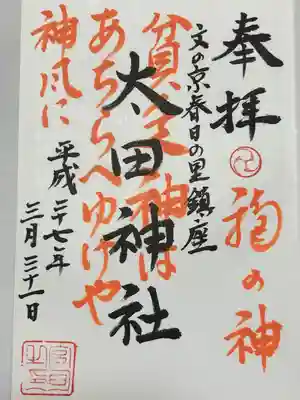 奉拝
の神
文の京春日の里鎮座
太田神社
貧乏神は
あちらへゆけや
神風に
平成二十七年
三月三十一日